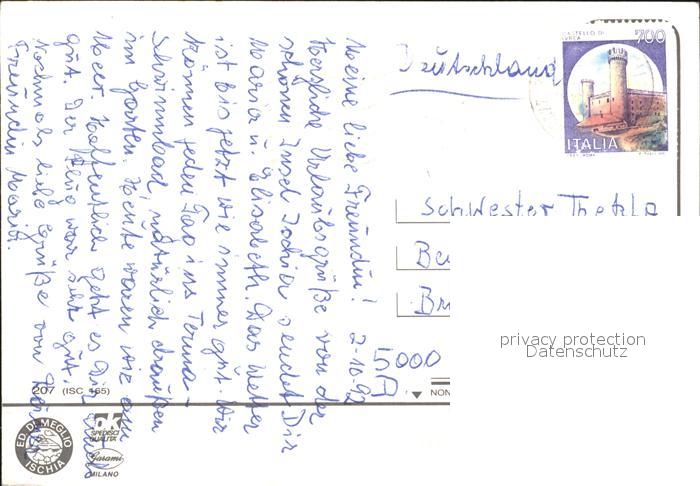 Meine liebe Freundin! 2-10-92
Herzliche Urlaubsgrüße von der
schönen Insel Ischia sendet Dir
Maria u. Elisabeth. Das Wetter
ist bis jetzt wie immer gut. Wir
können jeden Tag ins Terma-
Schwimmbad natürlich draußen
im Garten. Heute waren wir am
Meer. Hoffentlich geht es Dir auch
gut. Der Flug war sehr gut.
Nochmals liebe Grüße von Deiner
Freundin Maria.
Deutschland
CASTELLO DI
IVREA
700
ITALIA
Schwester Thekla
Be
Br
5000
privacy protection
Datenschutz
207 (ISC 165)
NON
ED. DI MEGLIO
ISCHIA
ok
SPEDISCI
QUALITA'
Garami
MILANO